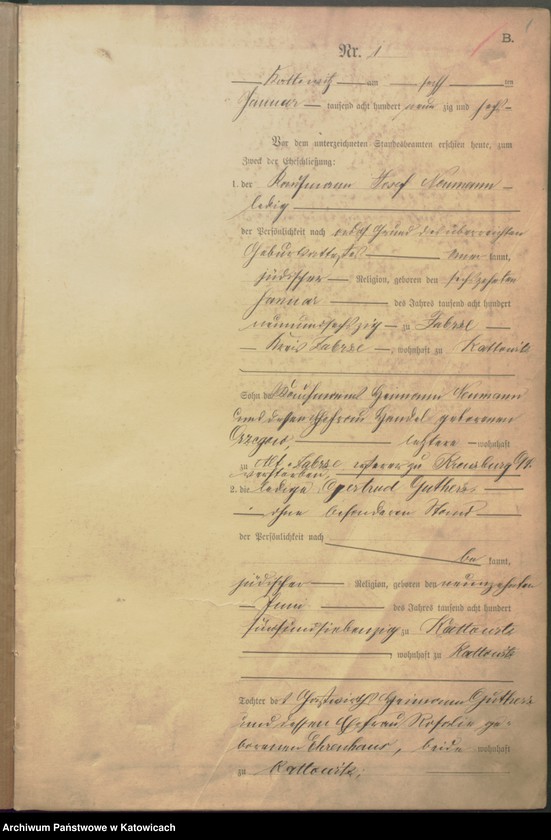 B.
Nr. 1
Kattowitz am sechs ten
Januar tausend acht hundert neun zig und sechs
Vor dem unterzeichneten Standesbeamten erschien heute, zum
Zweck der Eheschließung:
1. der Kaufmann Josef Neumann
ledig
der Persönlichkeit nach auf Grund des überreichten
Geburtsattestes aner kannt,
jüdischer Religion, geboren den sechszehnten
Januar des Jahres tausend acht hundert
neunundsechzig zu Zabrze
Kreis Zabrze, wohnhaft zu Kattowitz
Sohn des Kaufmanns Heimann Neumann
und dessen Ehefrau Handel geborenen
letztere wohnhaft
zu Alt-Zabrze, ersterer zu Kreuzburg O/S.
verstorben
2. die ledige Gertrud Guthers
ohne besonderen Stand
der Persönlichkeit nach
be kannt,
jüdischer Religion, geboren den neunzehnten
Juni des Jahres tausend acht hundert
fünfundsiebenzig zu Kattowitz
, wohnhaft zu Kattowitz
Tochter des Gastwirths Heimann Guthers
und dessen Ehefrau Rosalie ge-
borenen Ehrenhaus, beide wohnhaft
zu Kattowitz;
Archiwum Państwowe w Katowicach